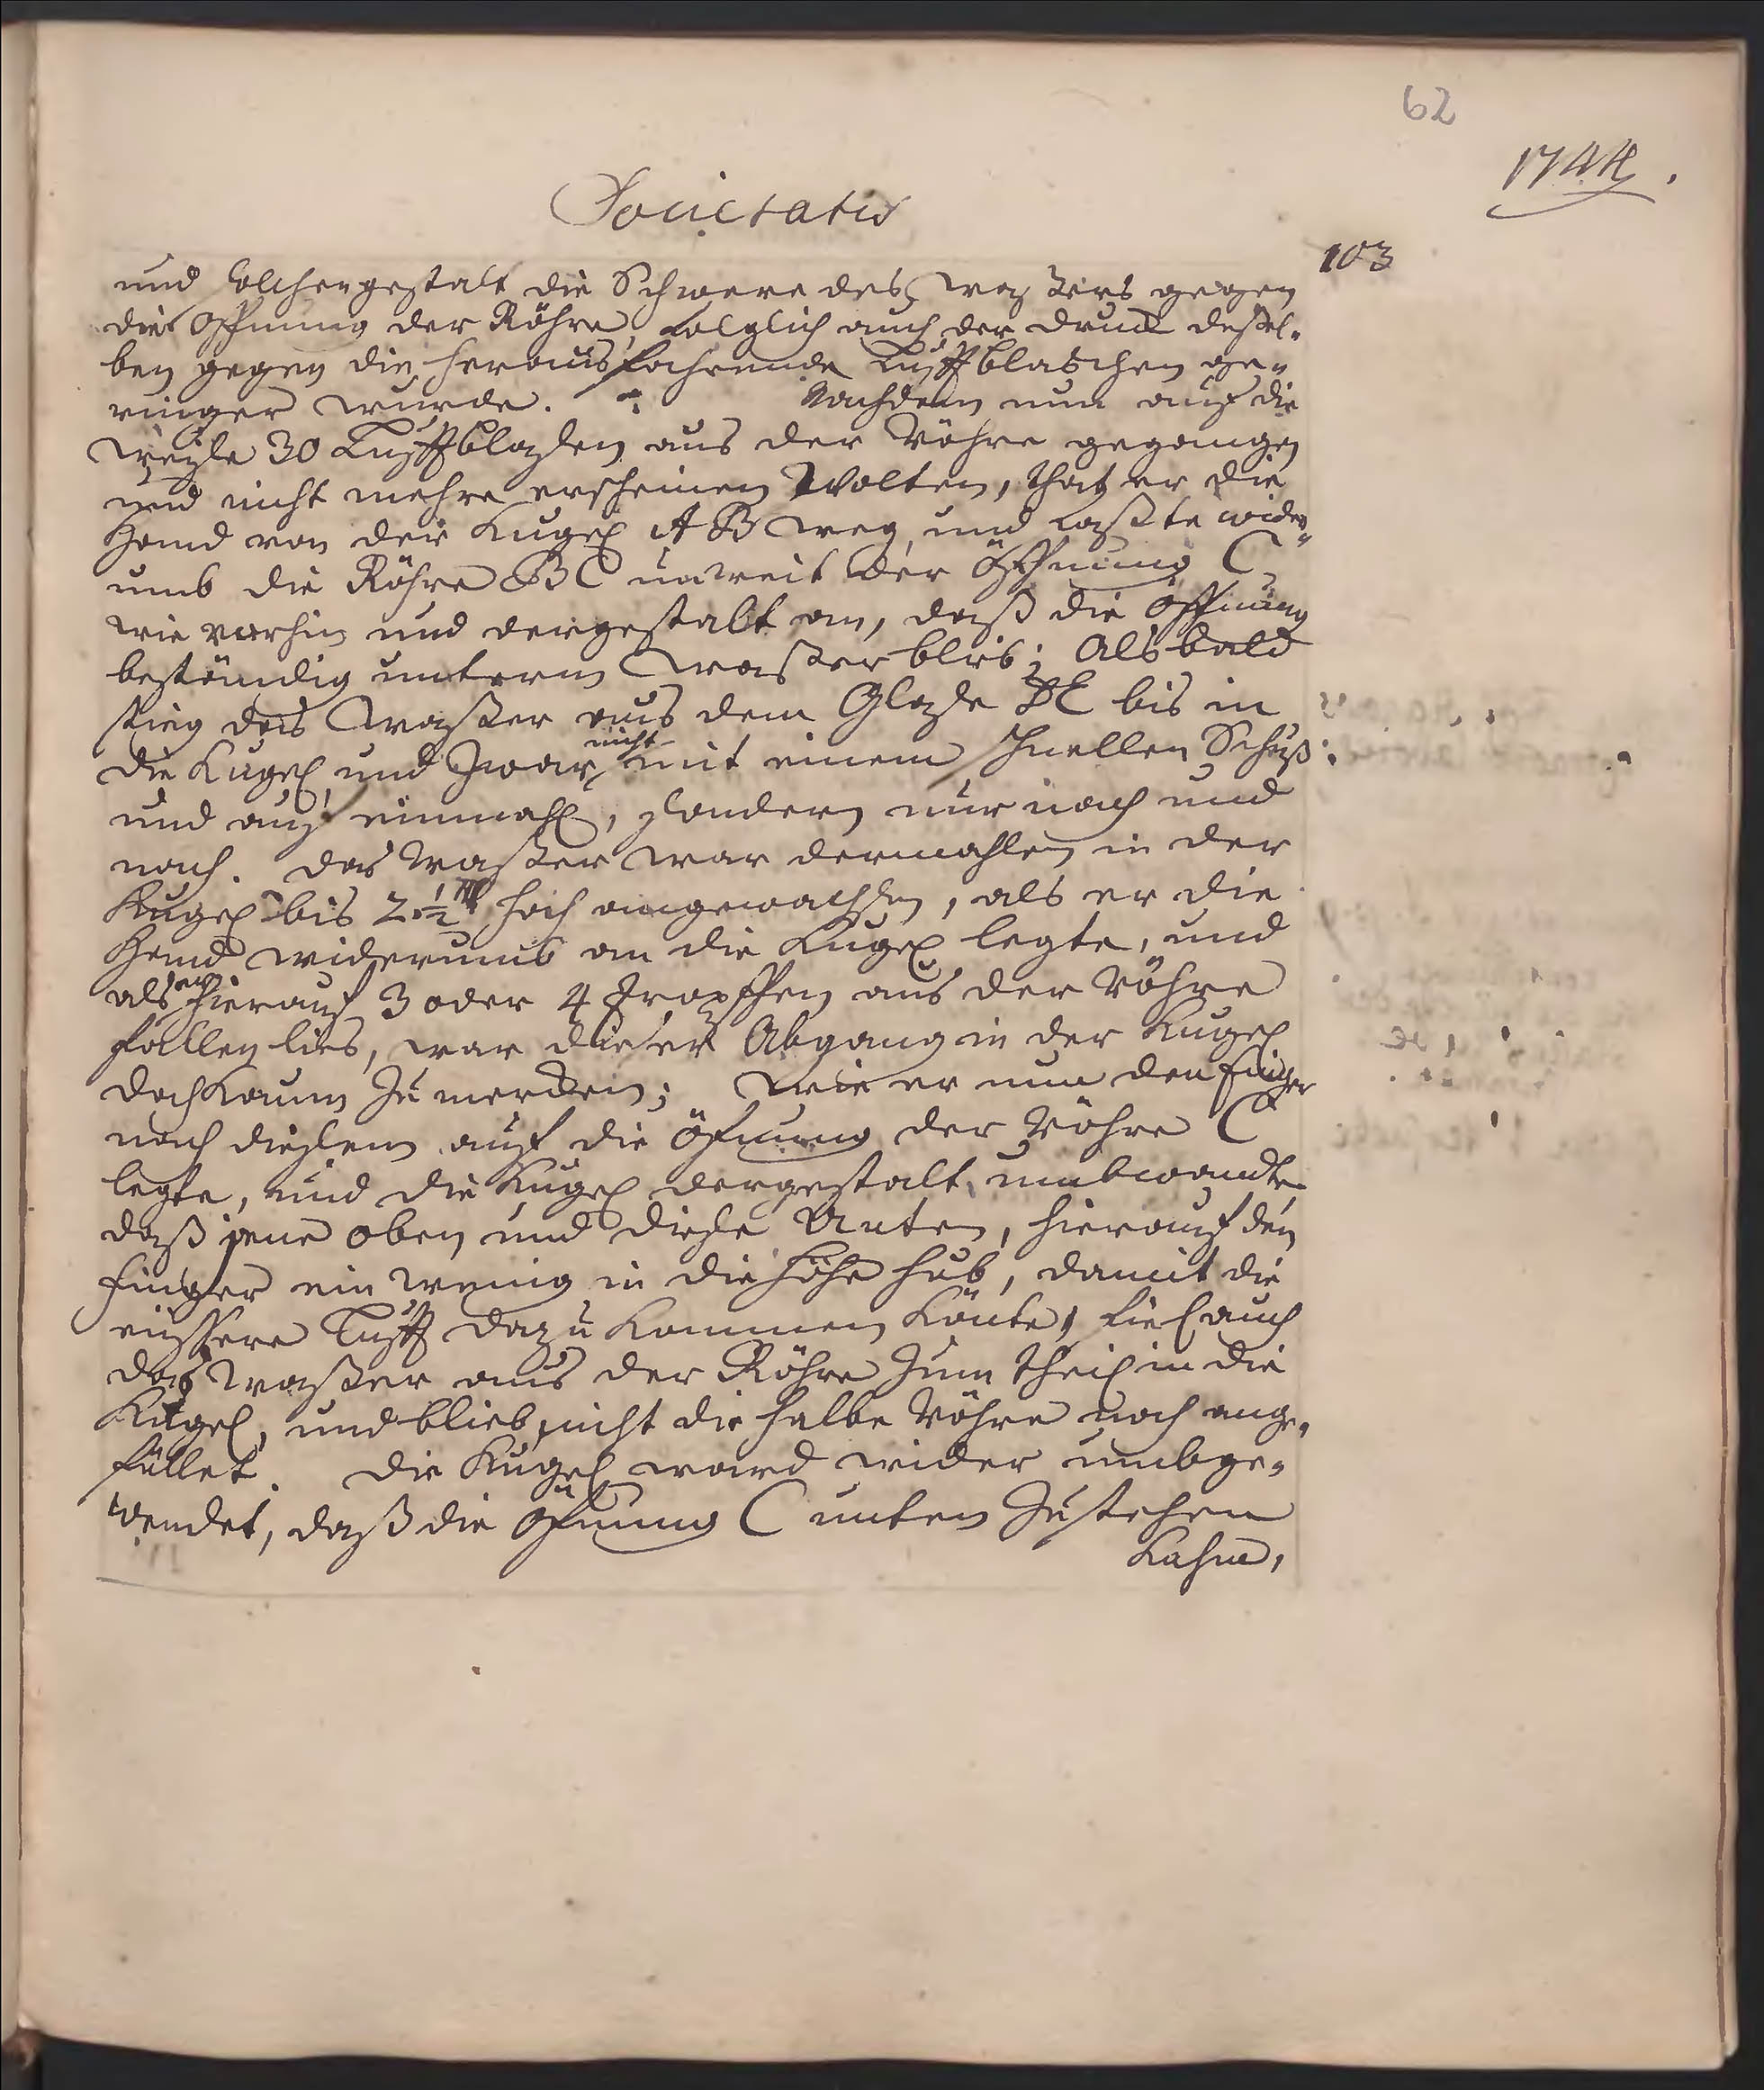 62
1744.
Societatis
103
und solchergestalt die Schwere des Waßers gegen
die Öffnung der Röhre, folglich auch der Druck deßel-
ben gegen die herausfahrende Luftblaschen ge-
ringer wurde. Nachdem nun auf die
weise 30 Luftblasen aus der Röhre gegangen
und nicht mehre erscheinen wolten, that er die
Hand von der Kugel AB weg, und faßte wider-
umb die Röhre BC unweit der Öffnung C,
wie vorhin und dergestalt an, daß die Öffnung
beständig unterm Waßer blieb; Alsbald
stieg das Waßer aus dem Glase DE bis in
die Kugel, und zwar nicht mit einem schnellen Schuß
und auf einmahl, sondern nur nach und
nach. Das Waßer war dermahlen in der
Kugel bis 2 1/2 hoch angewachsen, als er die
Hand widerumb an die Kugel legte, und
als er hierauf 3 oder 4 Tropffen aus der Röhre
fallen lies, war dieser Abgang in der Kugel
doch kaum zu mercken; Wie er nun den Finger
nach diesem auf die Öfnung der Röhre C
legte, und die Kugel dergestalt umbwandte
daß jene oben und diese Unten, hierauf den
Finger ein wenig in die Höhe hub, damit die
eussere Lufft dazu kommen könte, fiel auch
das Waßer aus der Röhre zum theil in die
Kugel, und blieb nicht die halbe Röhre noch ange-
füllet. Die Kugel ward wider umbge-
wendet, daß die Öfnung C unten zustehen
kahm,